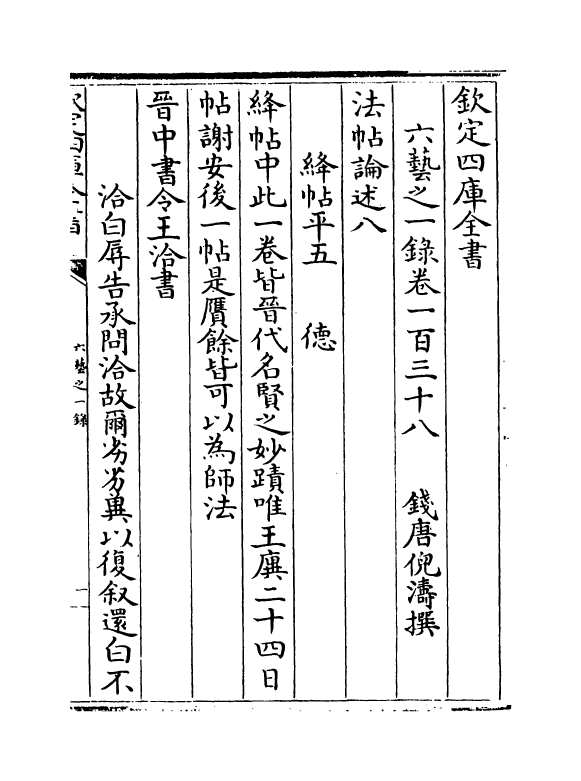 欽定四庫全書
六藝之一錄卷一百三十八 錢唐倪濤撰
法帖論述八
絳帖平五 德
絳帖中此一卷皆晉代名賢之妙蹟唯王廙二十四日
帖謝安後一帖是贋餘皆可以為師法
晉中書令王洽書
洽白辱告承問洽故爾劣劣異以復叙還白不
欽定四庫全書
六藝之一錄
一